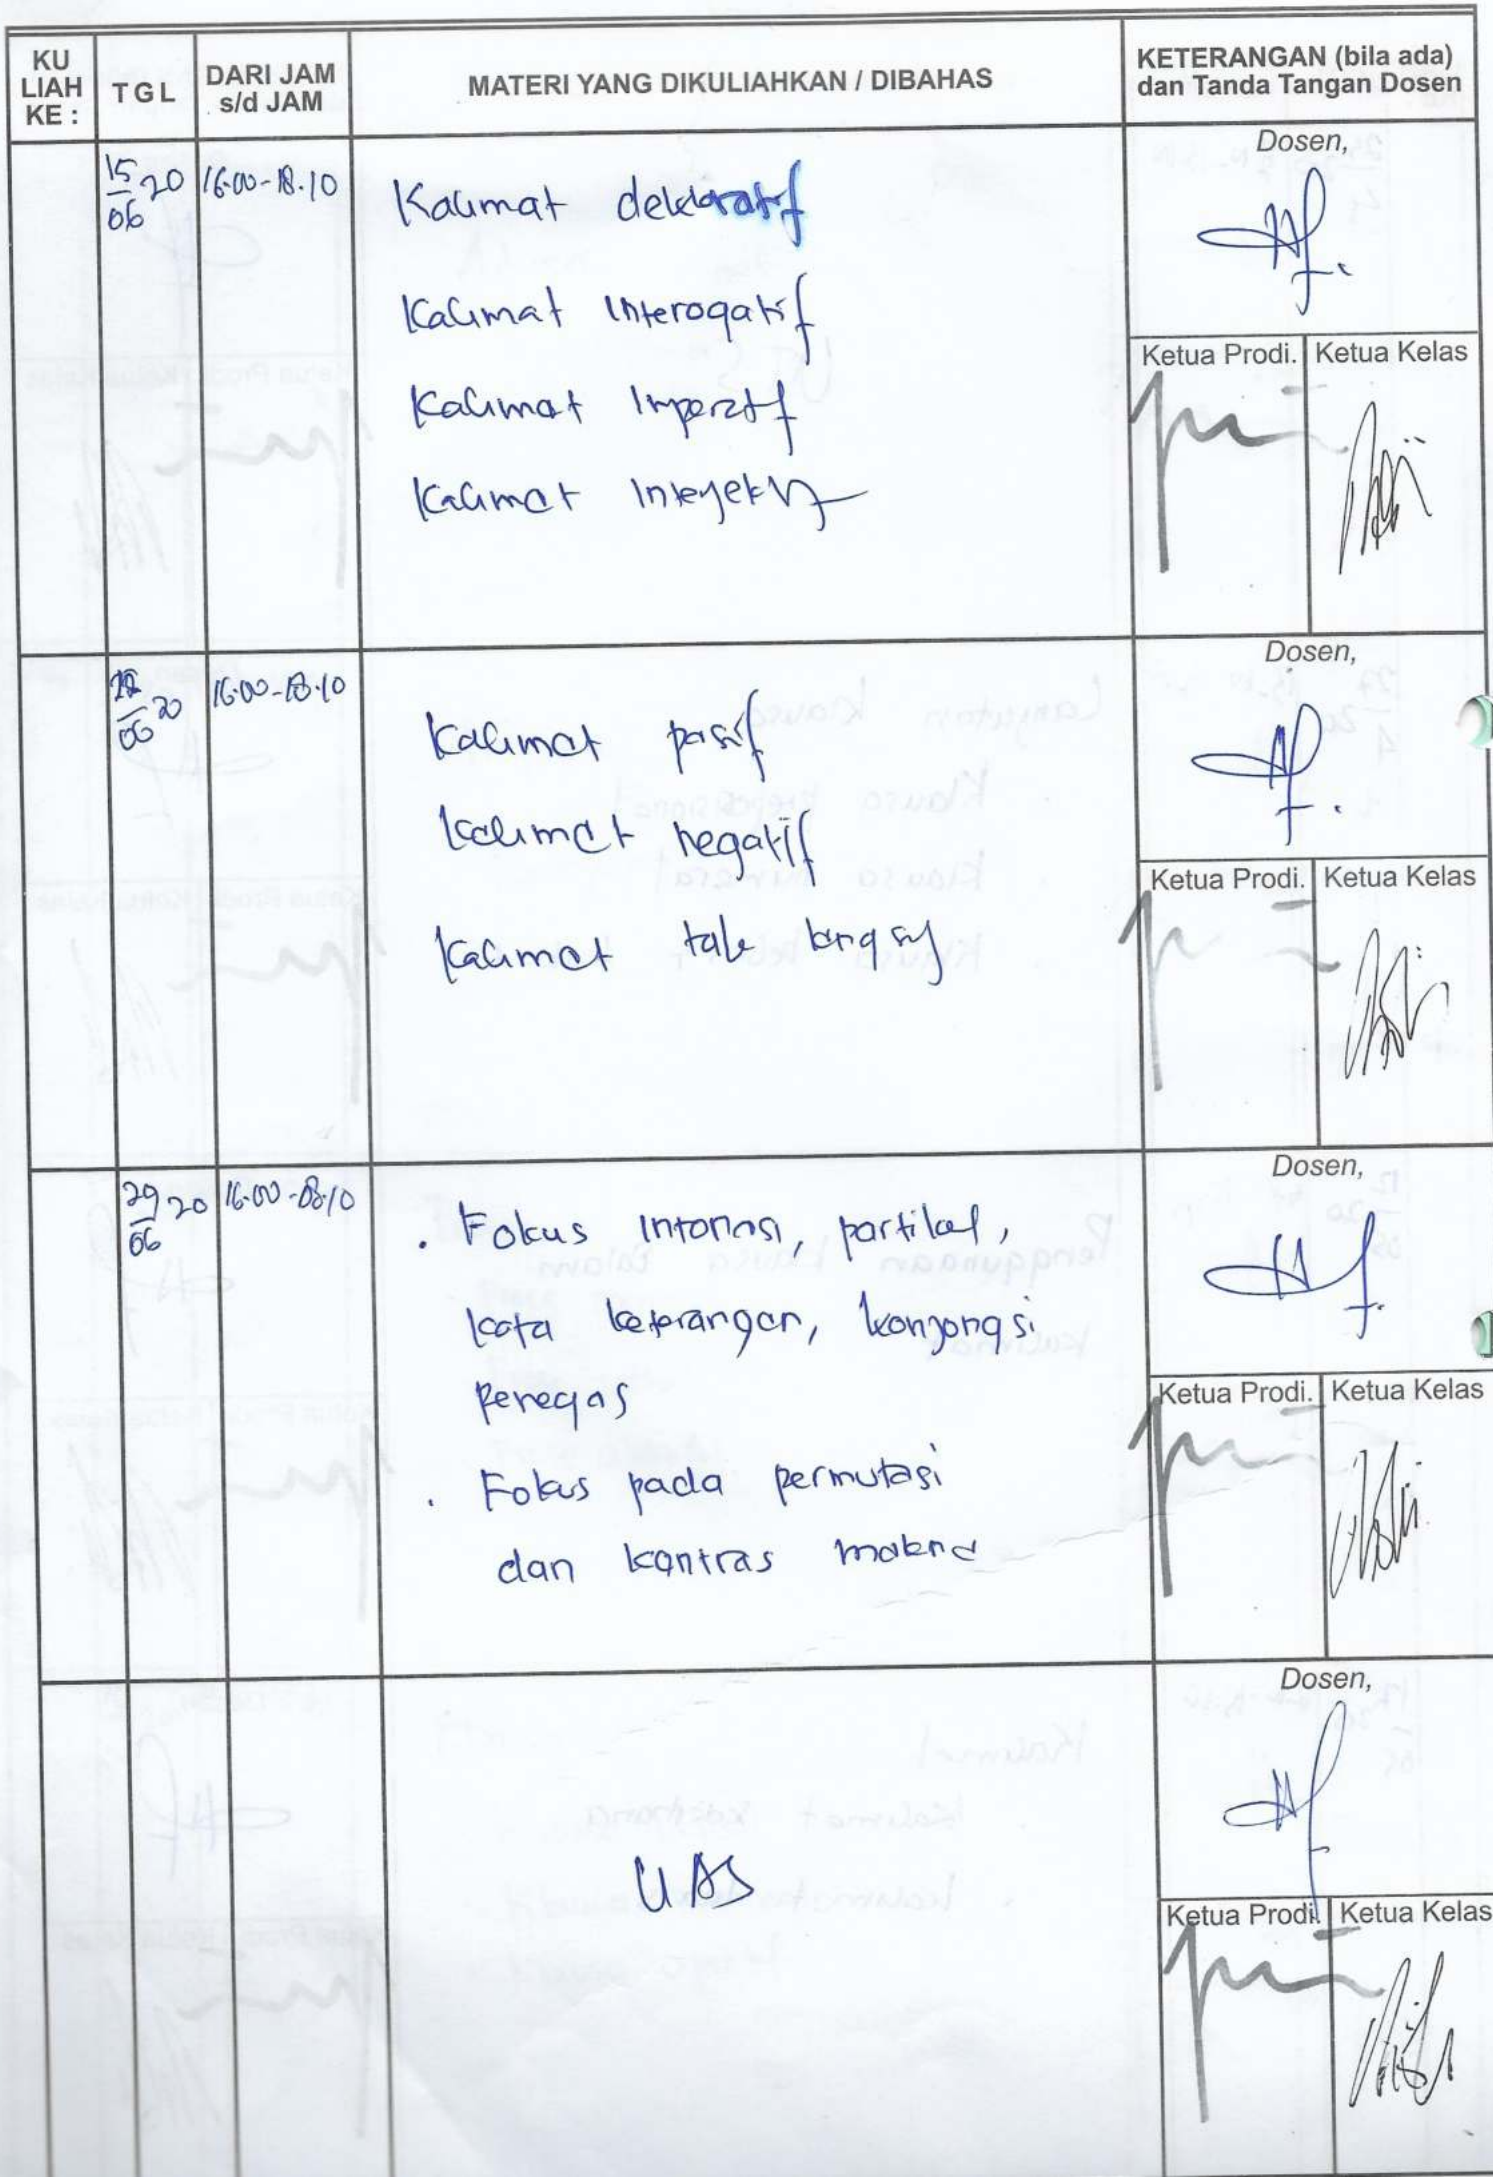 KU LIAH KE :
TGL
DARI JAM s/d JAM
MATERI YANG DIKULIAHKAN / DIBAHAS
KETERANGAN (bila ada) dan Tanda Tangan Dosen
15/06 20
16.00-18.10
Kalimat deklaratif
Kalimat Interogatif
Kalimat Imperatif
Kalimat Interjektif
Dosen,
Ketua Prodi.
Ketua Kelas
/06 20
16.00-18.10
Kalimat pasif
Kalimat negatif
Kalimat tak langsung
Dosen,
Ketua Prodi.
Ketua Kelas
29/06 20
16.00-18.10
. Fokus Intonasi, partikel,
kata keterangan, konjongsi
penegas
. Fokus pada permutasi
dan kontras makna
Dosen,
Ketua Prodi.
Ketua Kelas
UAS
Dosen,
Ketua Prodi.
Ketua Kelas